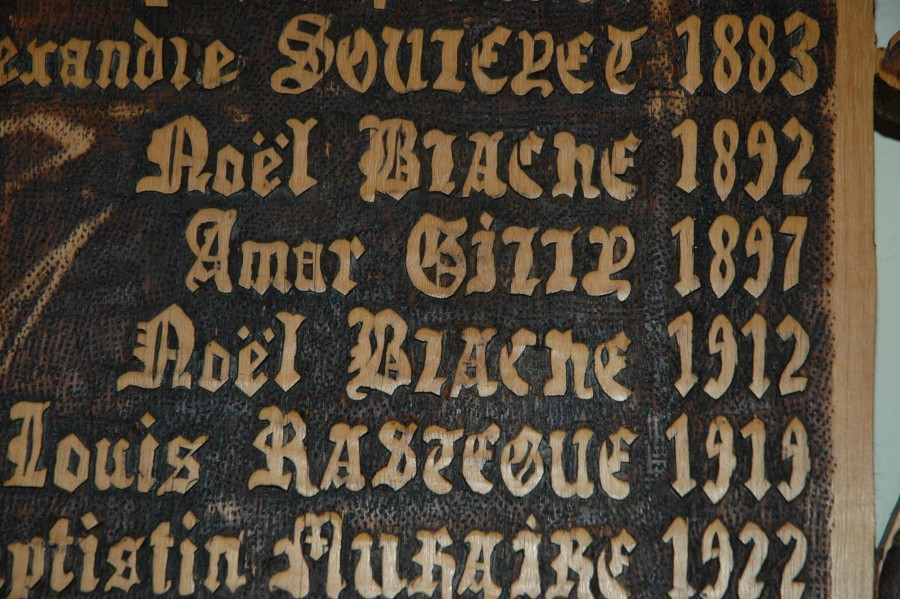 exandre SOULEYET 1883
Noël BLACHE 1892
Amar GILLY 1897
Noël BLACHE 1912
Louis RASTEGUE 1919
aptistin MURAIRE 1922